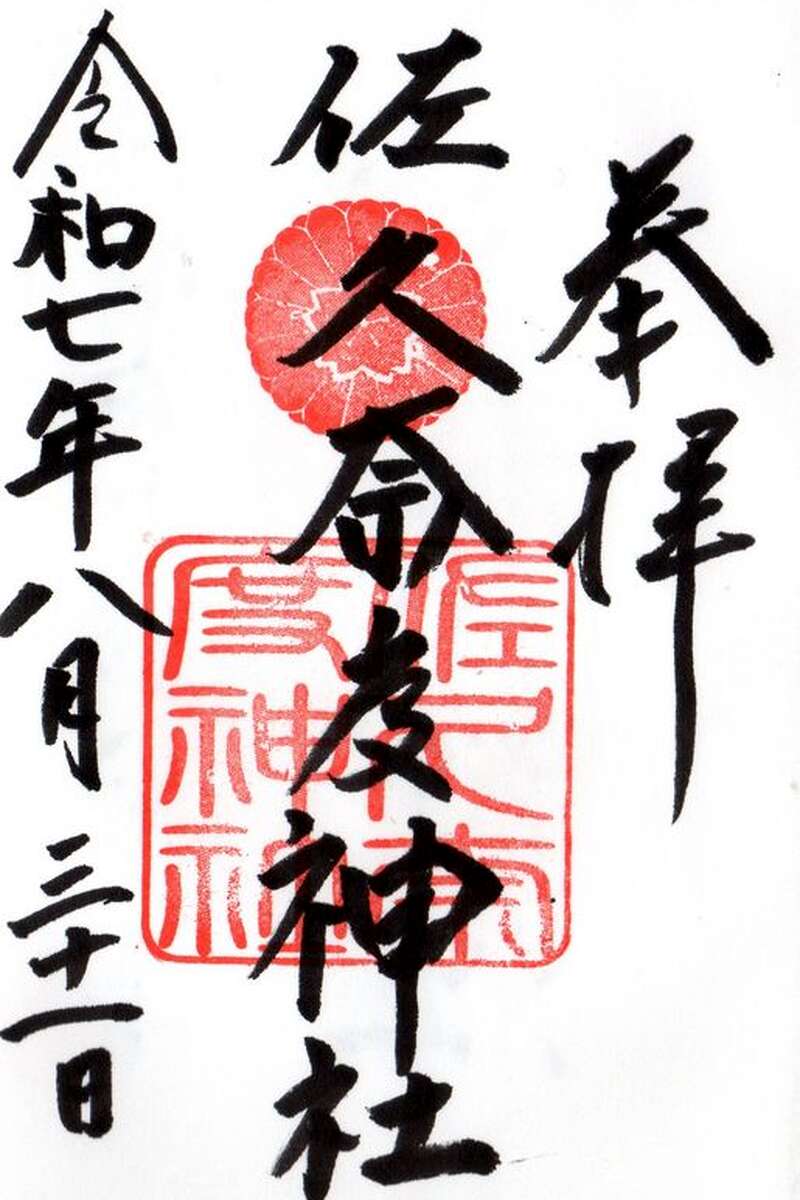 奉拝
佐久奈度神社
令和七年八月三十一日
佐久奈
度神社